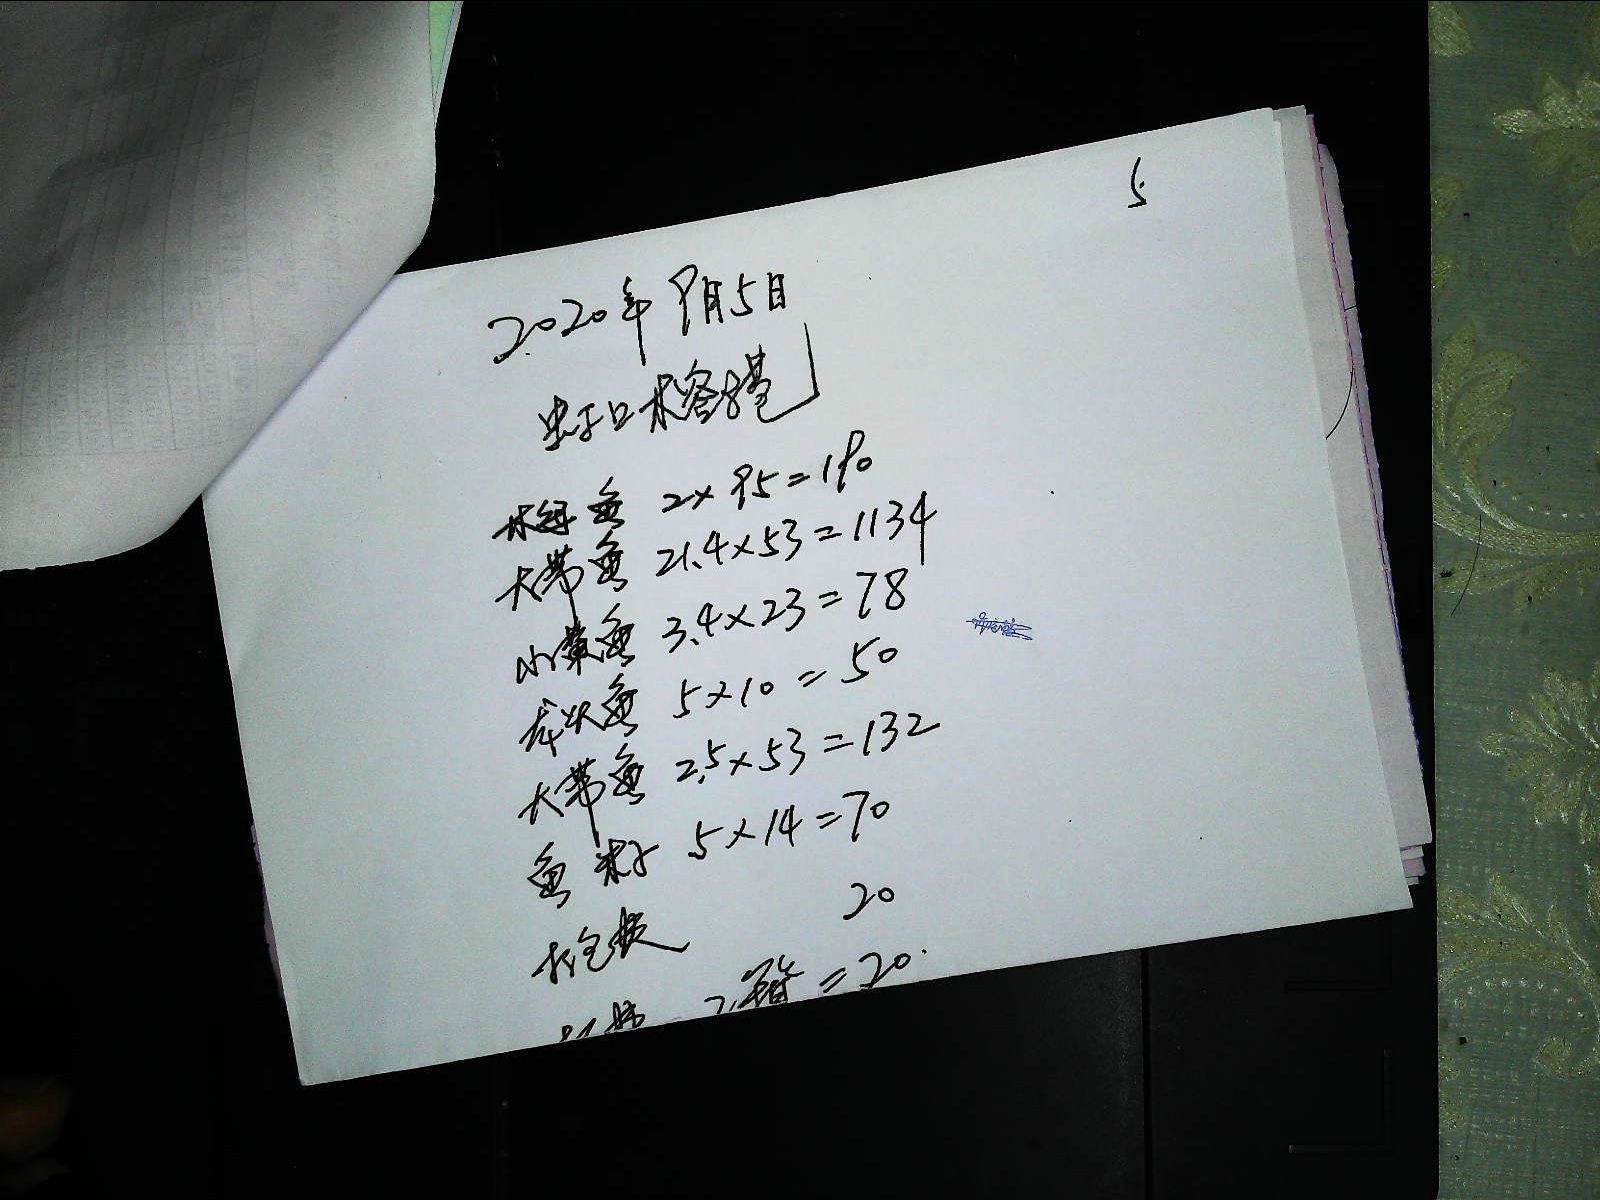 5
2020年9月5日
虹口
鱼 2×95=190
大带鱼 21.4×53=1134
小黄鱼 3.4×23=78
龙头鱼 5×10=50
大带鱼 2.5×53=132
鱼籽 5×14=70
打包费 20
=20